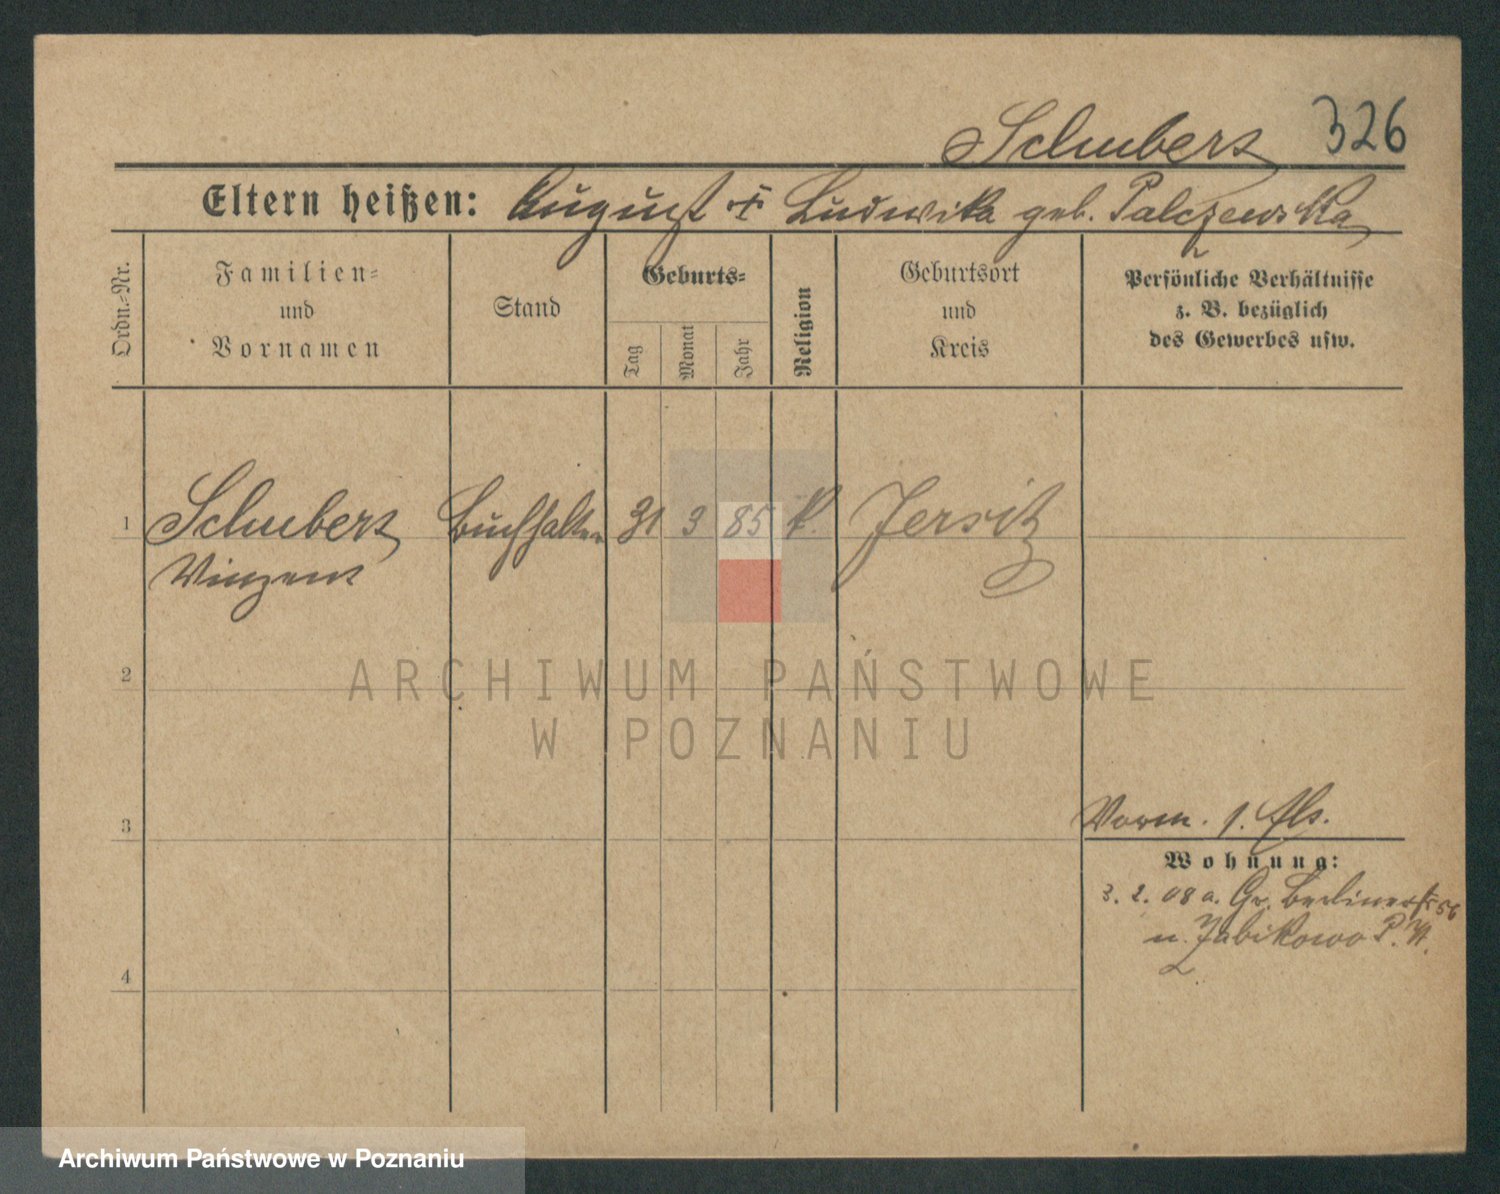 Schubert 326
Eltern heißen: August + Ludwika geb. Palczewska
Ordn.-Nr.
Familien-
und
Vornamen
Stand
Geburts-
Tag
Monat
Jahr
Religion
Geburtsort
und
Kreis
Persönliche Verhältnisse
z. B. bezüglich
des Gewerbes usw.
1 Schubert Buchhalter 31 3 85 k. Jersitz
Vinzent
2
ARCHIWUM PAŃSTWOWE
W POZNANIU
Vorm. 1.
3
Wohnung:
3. 2. 08 a. Gr. Berlinerstr 56
n. Zabikowo P. W.
4
Archiwum Państwowe w Poznaniu